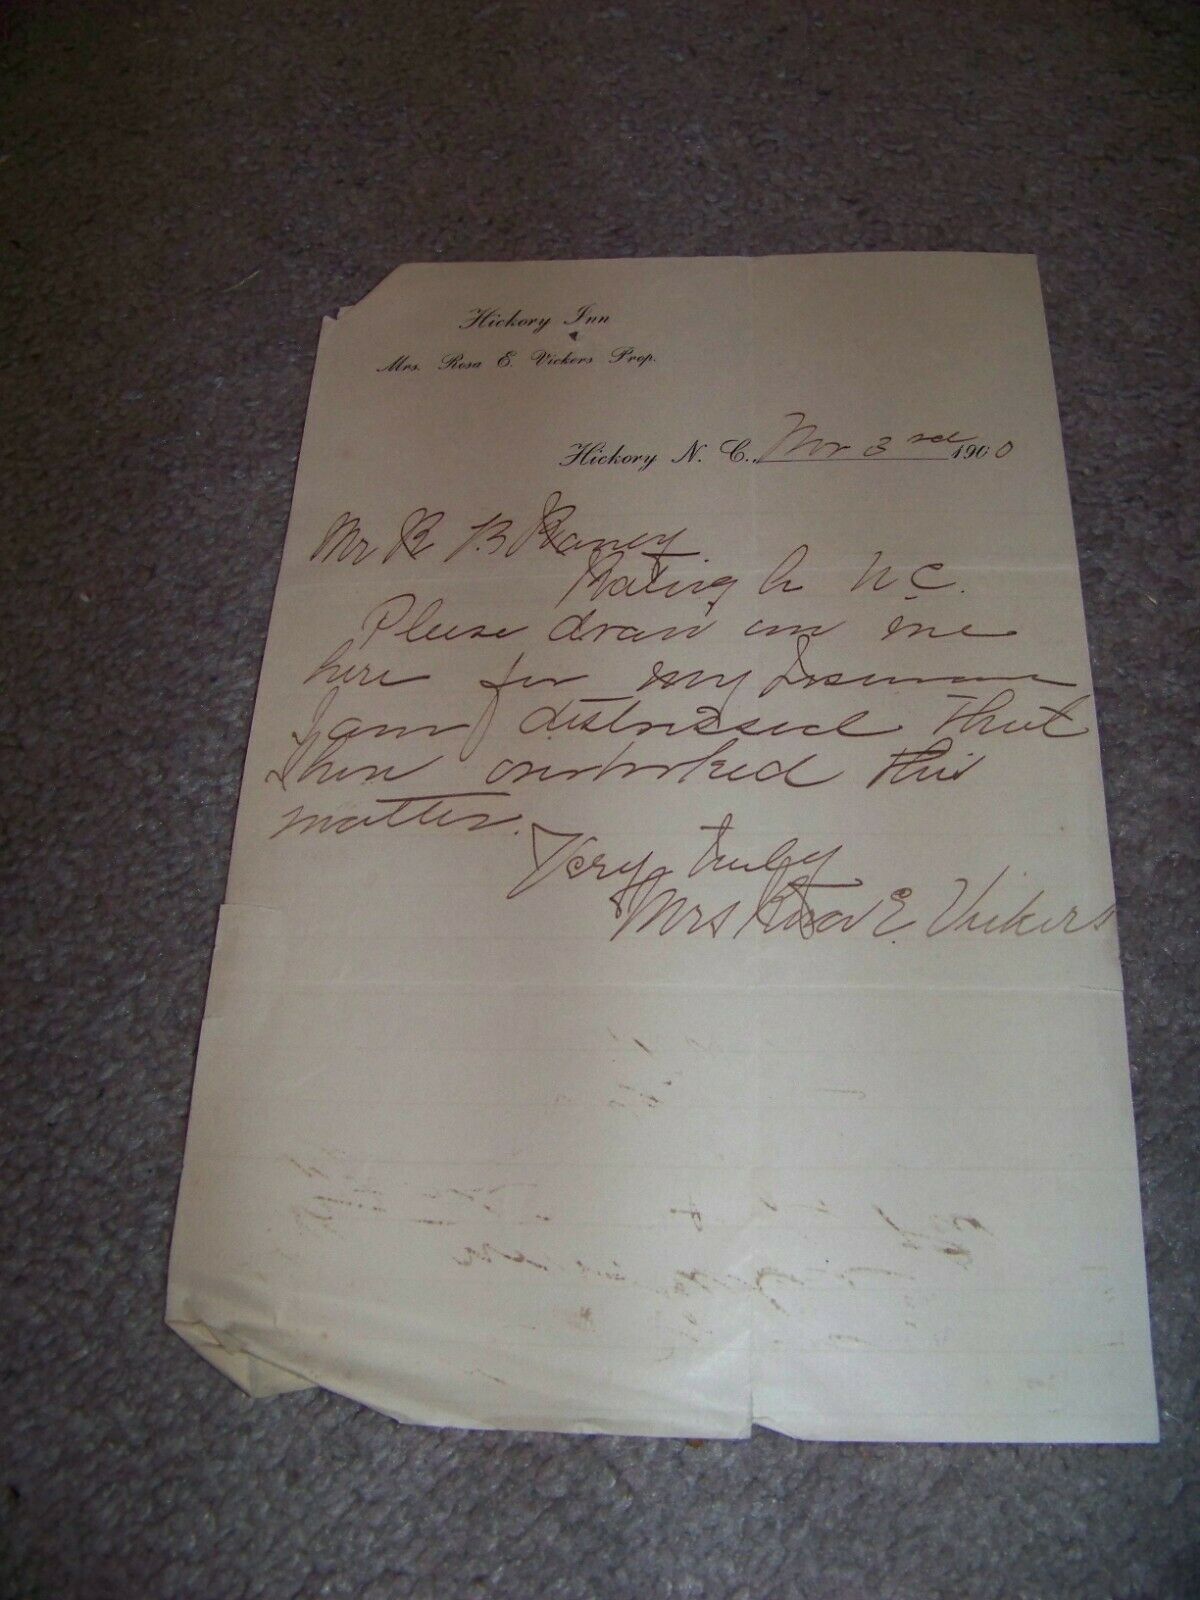 Hickory Inn
Mrs. Rosa E. Vickers Prop.
Hickory N. C. 3 1900
Mr R B Raney
Raleigh N C.
Please draw on me
here for my Insurance
I am distressed that
I have overlooked this
matter.
Very truly
Mrs Rosa E. Vickers